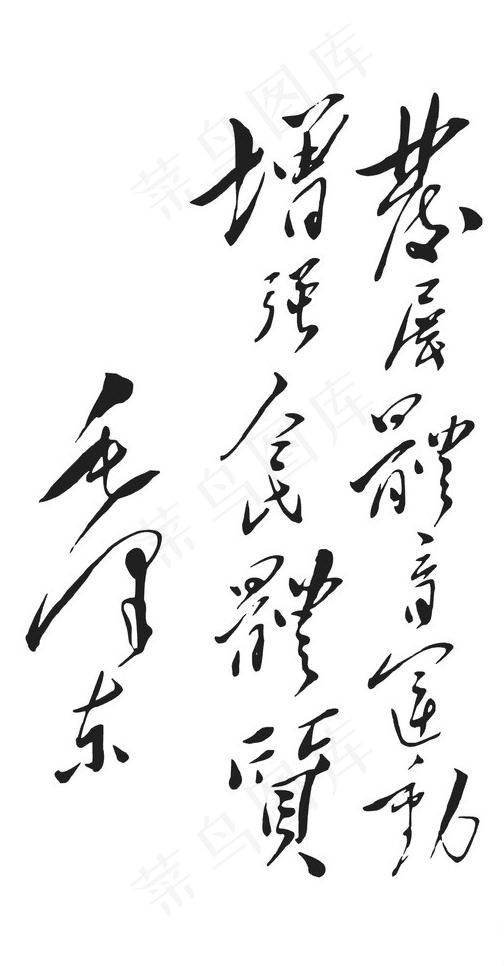 發展體育運動
增强人民體質
毛澤东
菜鸟图库
菜鸟图库
菜鸟图库